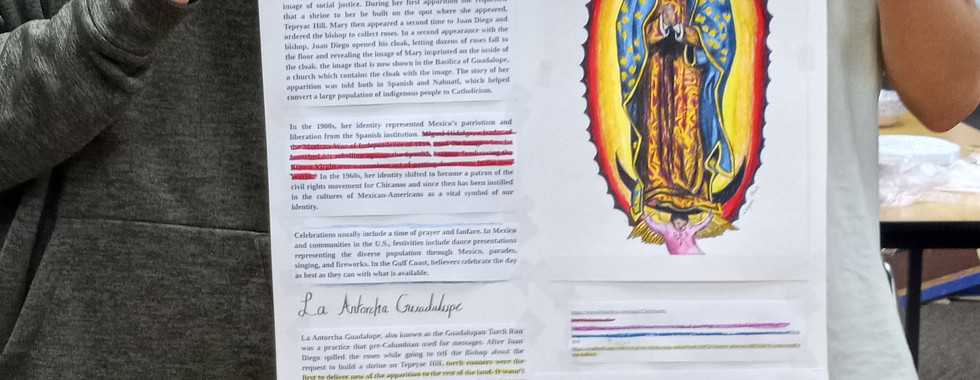 image of social justice. During her first apparition she requested
that a shrine to her be built on the spot where she appeared,
Tepeyac Hill. Mary then appeared a second time to Juan Diego and
ordered the bishop to collect roses. In a second appearance with the
bishop, Juan Diego opened his cloak, letting dozens of roses fall to
the floor and revealing the image of Mary imprinted on the inside of
the cloak. the image that is now shown in the Basilica of Guadalupe,
a church which contains the cloak with the image. The story of her
apparition was told both in Spanish and Nahuatl, which helped
convert a large population of indigenous people to Catholicism.
In the 1900s, her identity represented Mexico's patriotism and
liberation from the Spanish institution. Miguel Hidalgo, a leader of
the Mexican War of Independence of 1810,
launched his rebellion against the Spanish,
In the 1960s, her identity shifted to become a patron of the
civil rights movement for Chicanos and since then has been instilled
in the cultures of Mexican-Americans as a vital symbol of our
identity.
Celebrations usually include a time of prayer and fanfare. In Mexico
and communities in the U.S., festivities include dance presentations
representing the diverse population through Mexico, parades,
singing, and fireworks. In the Gulf Coast, believers celebrate the day
as best as they can with what is available.
La Antorcha Guadalupe
La Antorcha Guadalupe, also known as the Guadalupan Torch Run
was a practice that pre-Columbian used for messages. After Juan
Diego spilled the roses while going to tell the Bishop about the
request to build a shrine on Tepeyac Hill, torch runners were the
first to deliver new of the apparition to the rest of the land. It wasn't